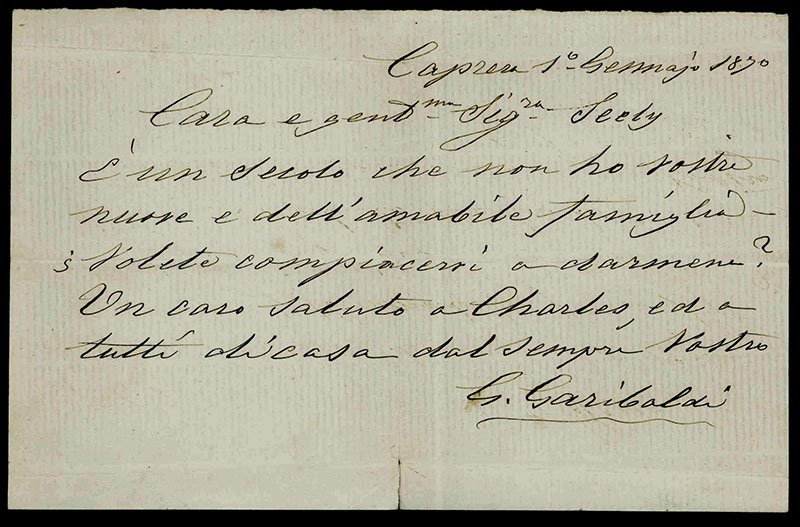 Caprera 1º Gennajo 1870
Cara e gentma Sigra Seely
È un secolo che non ho vostre
nuove e dell'amabile famiglia –
¿ Volete compiacervi a darmene?
Un caro saluto a Charles, ed a
tutti di casa dal sempre Vostro
G. Garibaldi